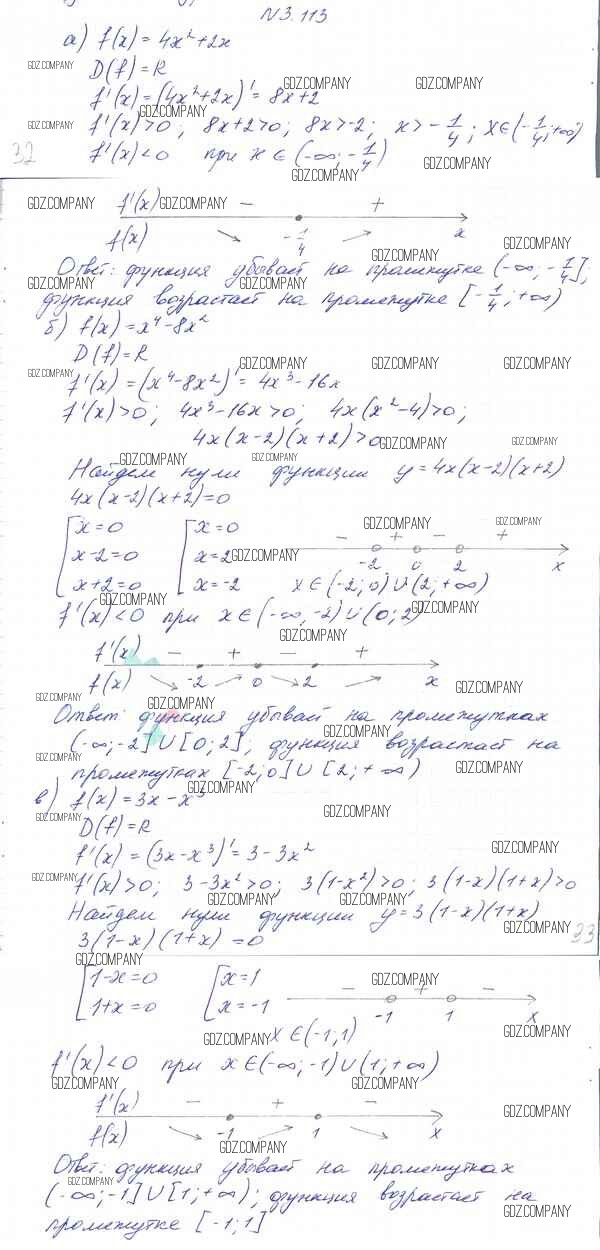 N 3.113
а) f(x) = 4x² + 2x
GDZ.COMPANY
D(f) = R
f'(x) = (4x² + 2x)' = 8x + 2
GDZ.COMPANY GDZ.COMPANY
GDZ.COMPANY
GDZ.COMPANY f'(x) > 0; 8x + 2 > 0; 8x > -2; x > -1/4; x ∈ (-1/4; +∞)
32 f'(x) < 0 при x ∈ (-∞; -1/4)
GDZ.COMPANY
GDZ.COMPANY
GDZ.COMPANY f'(x) GDZ.COMPANY - +
f(x) -1/4 x
GDZ.COMPANY GDZ.COMPANY
Ответ: функция убывает на промежутке (-∞; -1/4];
GDZ.COMPANY GDZ.COMPANY
функция возрастает на промежутке [-1/4; +∞)
б) f(x) = x⁴ - 8x²
D(f) = R
GDZ.COMPANY GDZ.COMPANY GDZ.COMPANY GDZ.COMPANY
f'(x) = (x⁴ - 8x²)' = 4x³ - 16x
f'(x) > 0; 4x³ - 16x > 0; 4x(x² - 4) > 0;
4x(x - 2)(x + 2) > 0
GDZ.COMPANY GDZ.COMPANY
GDZ.COMPANY GDZ.COMPANY
Найдем нули функции y = 4x(x - 2)(x + 2)
4x(x - 2)(x + 2) = 0
GDZ.COMPANY GDZ.COMPANY
[ x = 0 [ x = 0 - + - +
x - 2 = 0 x = 2 GDZ.COMPANY -2 0 2 x
x + 2 = 0 x = -2 x ∈ (-2; 0) ∪ (2; +∞)
GDZ.COMPANY GDZ.COMPANY
f'(x) < 0 при x ∈ (-∞; -2) ∪ (0; 2)
GDZ.COMPANY
f'(x) - + - +
f(x) -2 0 2 x
GDZ.COMPANY
GDZ.COMPANY GDZ.COMPANY
Ответ: функция убывает на промежутках
GDZ.COMPANY
(-∞; -2] ∪ [0; 2], функция возрастает на
GDZ.COMPANY GDZ.COMPANY
промежутках [-2; 0] ∪ [2; +∞)
GDZ.COMPANY
в) f(x) = 3x - x³
GDZ.COMPANY GDZ.COMPANY
D(f) = R
f'(x) = (3x - x³)' = 3 - 3x²
GDZ.COMPANY
GDZ.COMPANY f'(x) > 0; 3 - 3x² > 0; 3(1 - x²) > 0; 3(1 - x)(1 + x) > 0
GDZ.COMPANY GDZ.COMPANY
Найдем нули функции y = 3(1 - x)(1 + x)
GDZ.COMPANY 33
3(1 - x)(1 + x) = 0
GDZ.COMPANY
[ 1 - x = 0 [ x = 1 GDZ.COMPANY - + -
1 + x = 0 x = -1 -1 1 x
GDZ.COMPANY x ∈ (-1; 1) GDZ.COMPANY
f'(x) < 0 при x ∈ (-∞; -1) ∪ (1; +∞)
GDZ.COMPANY GDZ.COMPANY
f'(x) - + - GDZ.COMPANY
f(x) -1 1 x
GDZ.COMPANY
Ответ: функция убывает на промежутках
GDZ.COMPANY
(-∞; -1] ∪ [1; +∞); функция возрастает на
GDZ.COMPANY
промежутке [-1; 1]